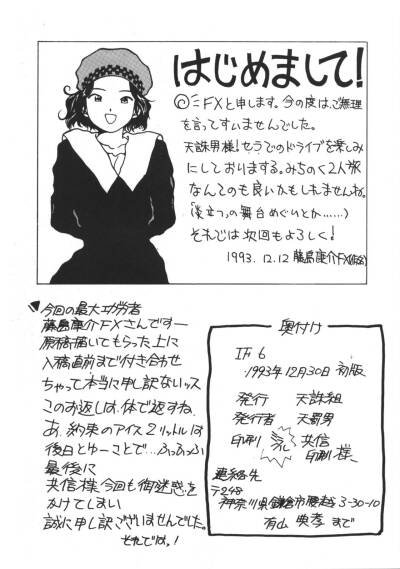 はじめまして!
FXと申します。今の度は、ご無理
を言ってすいませんでした。
天誅男様!セラでのドライブを楽しみ
にしておりまする。みちのく2人旅
なんてのも良いかもしれませんね。
の舞台めぐいとか……)
それでは次回もよろしく!
1993.12.12 藤島庸介FX(仮名)
今回の最大功労者
藤島庸介FXさんですー
原稿描いてもらった上に
入稿直前まで付き合わせ
ちゃって本当に申し訳ないッス
このお返しは、体で返すね。
あ、約束のアイス2リットルは
後日とゆーことで…ふっふっふ
最後に
共信様、今回も御迷惑を
かけてしまい
誠に申し訳ございませんでした。
それでは。!
奥付け
If 6
1993年12月30日 初版
発行 天誅組
発行者 天罰男
印刷 共信
印刷 様、
連絡先
〒248
神奈川県鎌倉市腰越3-30-10
有山 典孝 まで